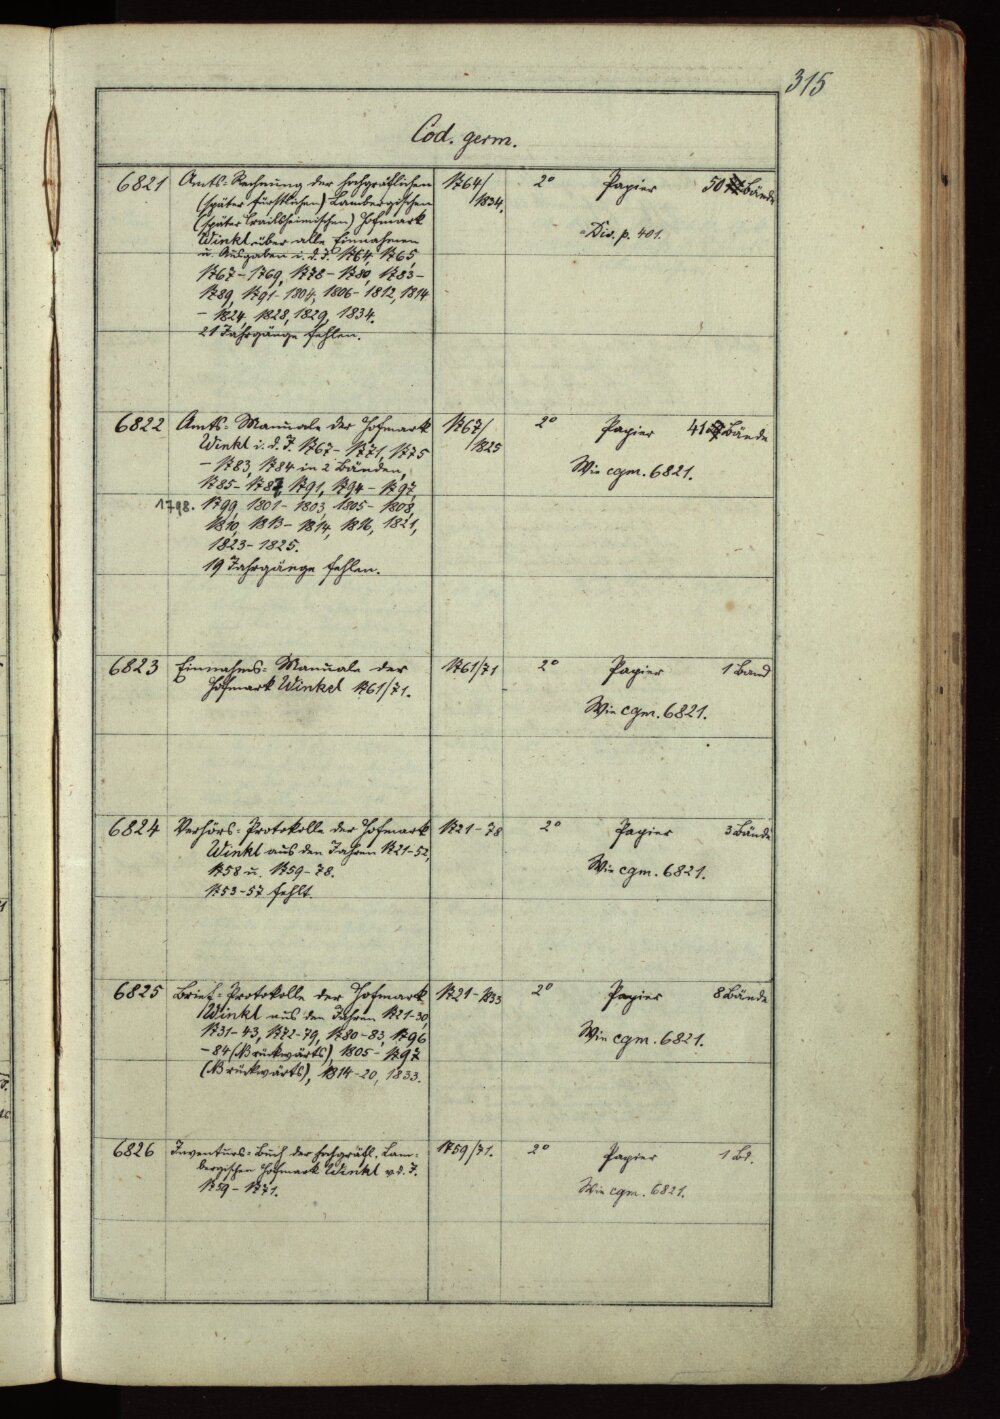 315
Cod. germ.
6821 Amts-Rechnung der hochgräflichen 1764/ 2° Papier 50 Bände
(später fürstlichen) Lambergischen 1834.
(später Crailsheimischen) Hofmark
Winkl über alle Einnahmen Div. p. 401.
u. Ausgaben i. d. J. 1764, 1765,
1767-1769, 1778-1780, 1783-
1789, 1791-1804, 1806-1812, 1814
- 1824, 1828, 1829, 1834.
21 Jahrgänge fehlen.
6822 Amts-Manuale der Hofmark 1767/ 2° Papier 41 Bände
Winkl i. d. J. 1767-1771, 1775 1825
- 1783, 1784 in 2 Bänden, Wie cgm. 6821.
1785-1787, 1791, 1794-1797,
1798. 1799, 1801-1803, 1805-1808,
1810, 1813-1814, 1816, 1821,
1823-1825.
19 Jahrgänge fehlen.
6823 Einnahms-Manuale der 1761/71 2° Papier 1 Band
Hofmark Winkel 1761/71. Wie cgm. 6821.
6824 Verhörs-Protokolle der Hofmark 1721-78 2° Papier 3 Bände
Winkl aus den Jahren 1721-52,
1758 u. 1759-78. Wie cgm. 6821.
1753-57 fehlt.
6825 Brief-Protokolle der Hofmark 1721-1833 2° Papier 8 Bände
Winkl aus den Jahren 1721-30,
1731-43, 1772-79, 1780-83, 1796 Wie cgm. 6821.
-84 (NB rückwärts), 1805-1797
(NB rückwärts), 1814-20, 1833.
6826 Inventurs-Buch der hochgräfl. Lam- 1759/71. 2° Papier 1 Bd.
bergischen Hofmark Winkl v. d. J.
1759-1771. Wie cgm. 6821.